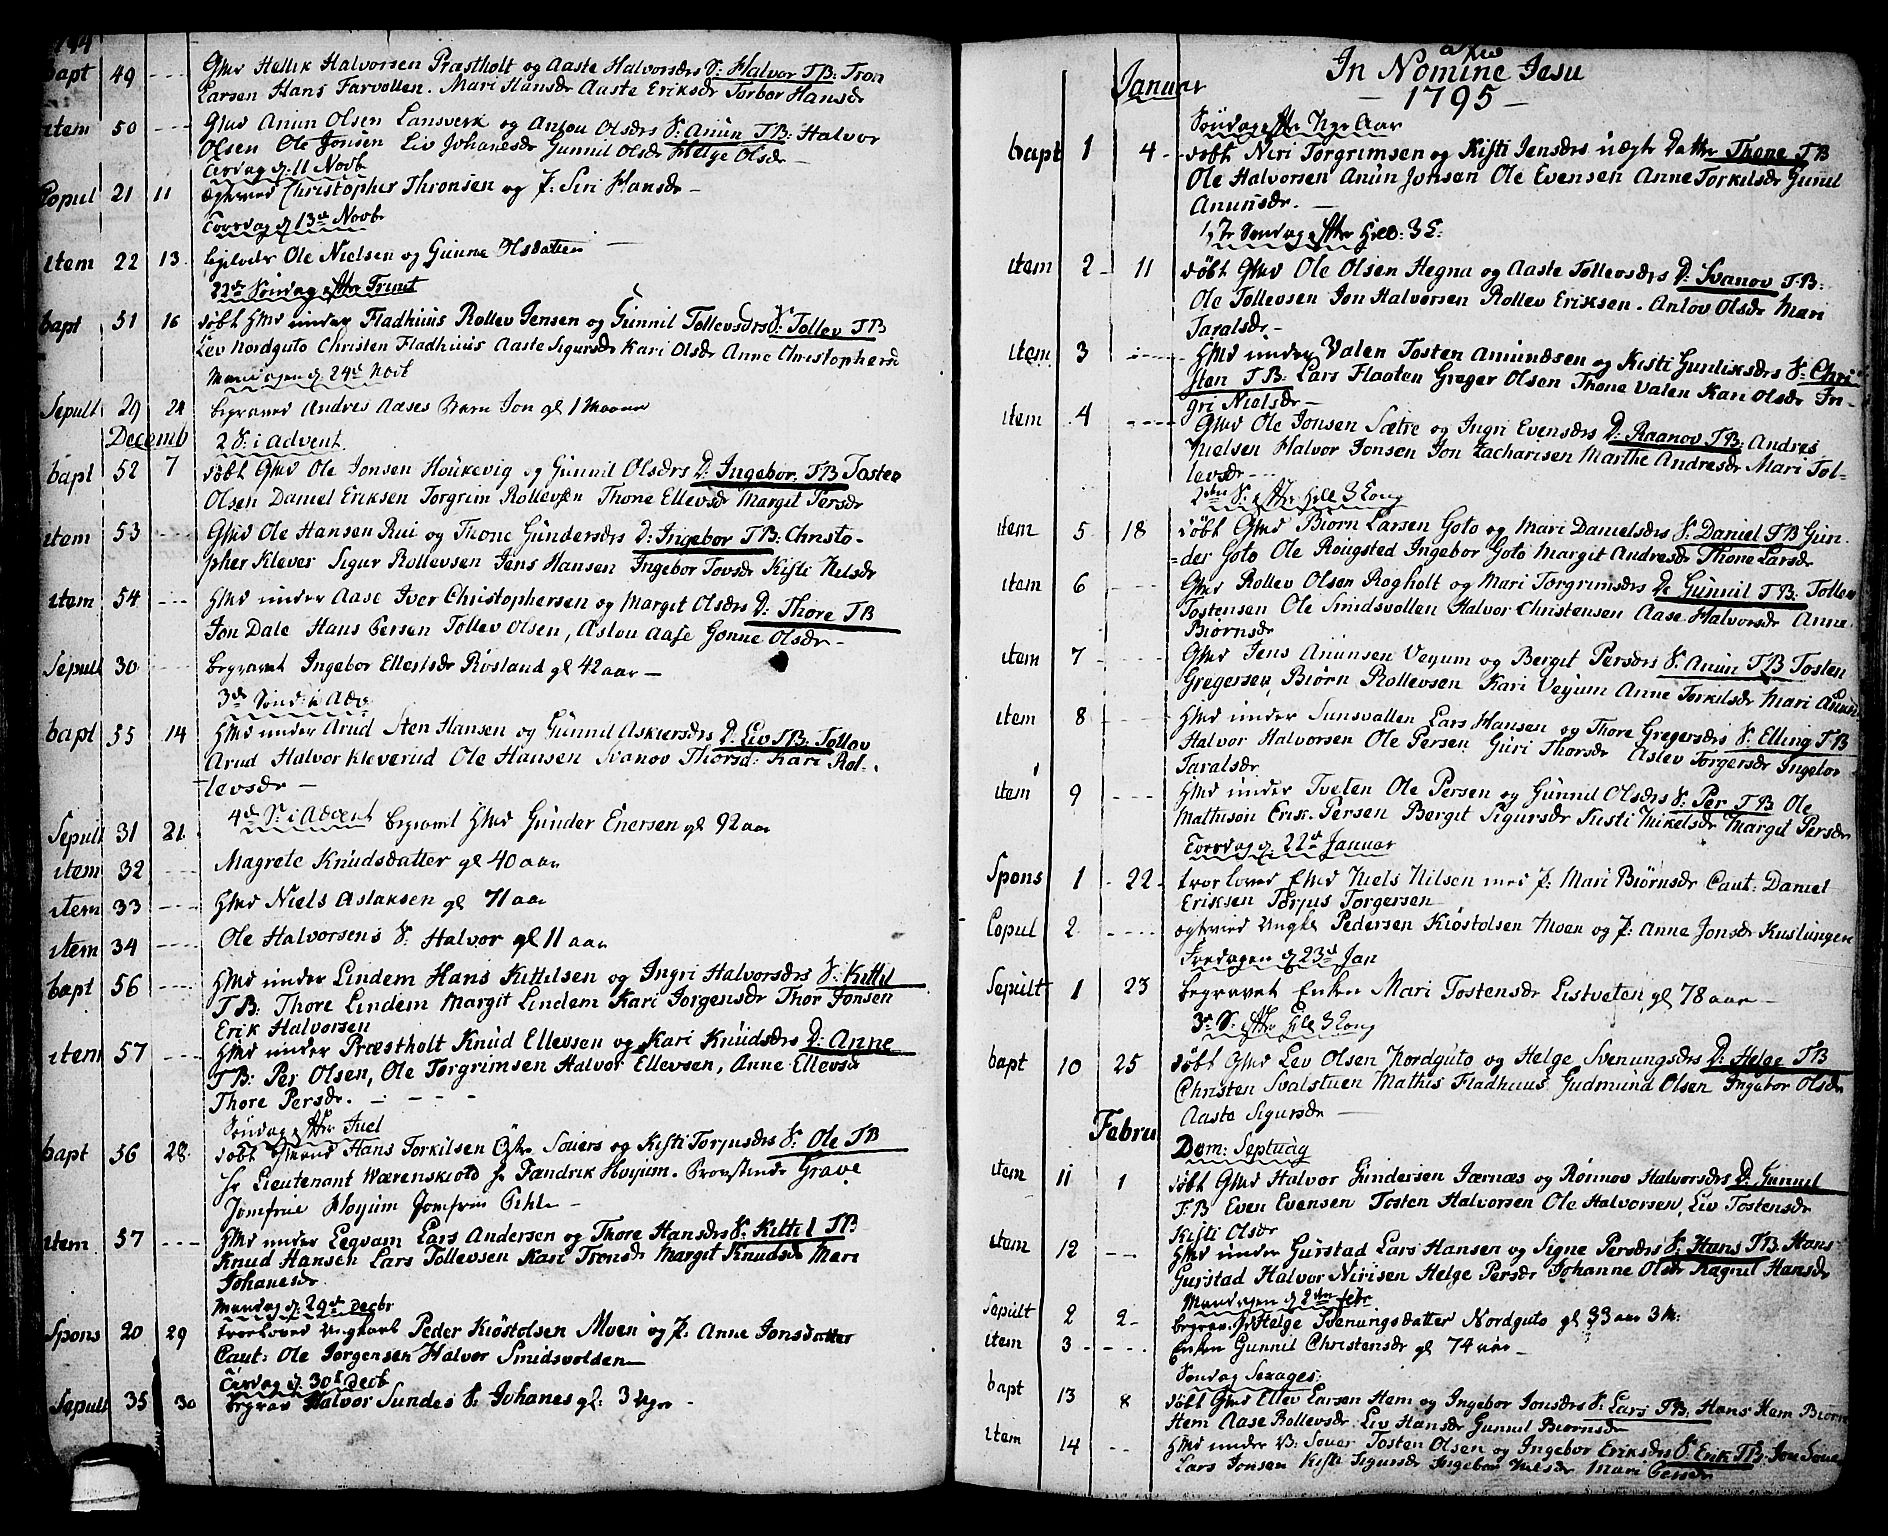 144
bapt 49 --- Gmd Hellik Halvorsen Præstholt og Aaste Halvorsdr S: Halvor TB: Tron
Larsen Hans Farvollen. Mari Hansdr Aaste Eriksdr Torbor Hansdr
item 50 --- Gmd Anun Olsen Lansverk og Anlou Olsdrs S: Anun TB: Halvor
Olsen Ole Jonsen Liv Johanesdr Gunnil Olsdr Helge Olsdr —
Tirsdag d: 11 Novb
Copul 21 11 ægteviet Christopher Thronsen og P: Siri Hansdr —
Torsdag d 13de Novb
item 22 13 ligeledes Ole Nielsen og Gunne Olsdatter —
22de Søndag efter Trinit
bapt 51 16 døbt Hmd under Fladhuus Rollev Jensen og Gunnil Tollevsdrs S: Tollev TB
Lev Nordguto Christen Fladhuus Aaste Sigursdr Kari Olsdr Anne Christophersd
Mandagen d 24de Novb
Sepult 29 24 begraved Andres Aases Barn Jon gl 1 Maaned
Decemb 2 S: i Advent
bapt 52 7 døbt Gmd Ole Jonsen Houkevig og Gunnil Olsdrs D: Ingebor: TB Tosten
Olsen Daniel Eriksen Torgrim Rollevsen Thone Ellevsdr Margit Persdr
item 53 --- Gmd Ole Hansen Rui og Thone Gundersdrs D: Ingebor TB: Christo-
pher Klever Sigur Rollevsen Jens Hansen Ingebor Tovsdr Kisti Nelsdr
item 54 --- Hmd under Aase Iver Christophersen og Margit Olsdrs D: Thore TB
Jon Dale Hans Persen Tollev Olsen, Aslou Aase Gonne Olsdr —
Sepult 30 --- begravet Ingebor Ellefsdr Rosland gl 42 aar —
3de Sønd: i Adv
bapt 55 14 Hmd under Arud Sten Hansen og Gunnil Aslacsdrs D: Liv TB: Tollov
Arud Halvor Kleverud Ole Hansen Svanov Thorsd: Kari Rol-
levsdr —
4de S: i Advent
Sepult 31 21. begravet Hmd Gunder Enersen gl 92 aar
item 32 --- Magrete Knudsdatter gl 40 aar
item 33 --- Hmd Niels Aslaksen gl 71 aar
item 34 --- Ole Halvorsens S: Halvor gl 11 aar
bapt 56 --- Hmd under Lindem Hans Kittilsen og Ingri Halvorsdrs S: Kittil
TB: Thore Lindem Margit Lindem Kari Jorgensdr Thor Jonsen
Erik Halvorsen
item 57 --- Hmd under Præstholt Knud Ellevsen og Kari Knudsdrs D: Anne
TB: Per Olsen, Ole Torgrimsen Halvor Ellevsen, Anne Ellevsd
Thore Persdr. —
Søndag efter Juel
bapt 56 28 døbt Hans Torkilsen Østre Souers og Kisti Torjusdrs S: Ole TB
Hr Lieutenant Wærenskiold Hr Fændrik Hoyum. Provstinde Grave
Jomfrue Hoyum Jomfrue Pihl —
item 57 --- Hmd under Eegvam Lars Andersen og Thore Hansdrs S: Kittil TB
Knud Hansen Lars Tollevsen Kari Tronsdr Margit Knudsdr Mari
Johanesdr
Mandag d: 29de Decbr
Spons 20 29 trolover Ungkarl Peder Kiøstolsen Moen og P: Anne Jonsdatter
Caut: Ole Jorgensen Halvor Smidsvolden
Tirsdag d: 30t Decb
Sepult 35 30 begrav Halvor Sundes S: Johanes gl: 3 Uger —
In Nomine Jesu
Januar — 1795 —
Søndag efter Nye Aar
bapt 1 4 døbt Niri Torgrimsen og Kisti Jensdrs uægte Datter Thone TB
Ole Halvorsen Anun Jonsen Ole Evensen Anne Torkilsdr Gunil
Anunsdr. —
1ste Søndag efter Hell: 3 K:
item 2 11 døbt Gmd Ole Olsen Hegna og Aaste Tollevsdrs D: Svanov T.B:
Ole Tollevsen Jon Halvorsen Rollev Eriksen. Anlov Olsdr Mari
Taralsdr —
item 3 ---- Hmd under Valen Tosten Amundsen og Kisti Gunliksdrs S: Chri
sten TB: Lars Flaaten Greger Olsen Thone Valen Kari Olsdr In-
gri Nielsdr —
item 4 ---- Gmd Ole Jonsen Sætre og Ingri Evensdrs D: Raanov TB: Andres
Nielsen Halvor Jonsen Jon Zacharisen Marthe Andresdr Mari Tol-
levsdr —
2den S: efter Hell 3 Kong
item 5 18 døbt Gmd Biørn Larsen Goto og Mari Danielsdrs S: Daniel TB Gun-
der Goto Ole Rougsted Ingebor Goto Margit Andresdr Thone Larsdr
item 6 --- Gmd Rollev Olsen Rogholt og Mari Torgrimsdrs D: Gunnil TB: Tollev
Tostensen Ole Smidsvollen Halvor Christensen Aase Halvorsdr Anne
Biørnsdr
item 7 --- Gmd Jens Anunsen Veyum og Bergit Persdrs S: Anun TB Tosten
Gregersen, Biørn Rollevsen Kari Veyum Anne Torkilsdr Mari Anun
item 8 --- Hmd under Sunsvallen Lars Hansen og Thore Gregersdrs S: Elling TB
Halvor Halvorsen Ole Persen Guri Thorsdr Aslev Torgersdr Ingebor
Taralsdr
item 9 --- Hmd under Tveten Ole Persen og Gunnil Olsdrs S: Per TB Ole
Mathison Erik Persen Bergit Sigursdr Kisti Mikelsdr Margit Persdr
Torsdag d: 22de Januar
Spons 1 22 trolover Niels Nilsen med P: Mari Biørnsdr Caut: Daniel
Eriksen Torjus Torgersen
Copul 2 --- ægteviet Ungk: Pedersen Kiøstolsen Moen og P: Anne Jonsdr Kuslungen
Fredagen d 23de Jan
Sepult 1 23 begravet Enken Mari Tostensdr Listveten gl 78 aar —
3de S: efter Hell 3 Kong
bapt 10 25 døbt Gmd Lev Olsen Nordguto og Helge Svenungsdrs D: Helge TB
Christen Svalstuen Mathis Fladhuus Gudmund Olsen Ingebor Olsdr
Aaste Sigursdr —
Februr Dom: Septuag
item 11 1 døbt Gmd Halvor Gundersen Jærnæs og Rønnov Halvorsdrs D: Gunnil
T.B Even Evensen Tosten Halvorsen Ole Halvorsen, Liv Tostensdr
Kisti Olsdr
item 12 --- Hmd under Gurstad Lars Hansen og Signe Persdrs S: Hans TB. Hans
Gurstad Halvor Nirisen Helge Persdr Johanne Olsdr Ragnil Hansdr
Mandagen d 2den Febr
Sepult 2 2 begrav: Helge Svenungsdatter Nordguto gl 33 aar 3 M:
item 3 ---- Enken Gunnil Christensdr gl 74 aar —
Søndag Sexages:
bapt 13 8 døbt Gmd Ellev Larsen Hem og Ingebor Jonsdrs S: Lars TB: Hans Hem Biørn
Hem Aase Rollevsdr Liv Hansdr Gunnil Biørnsdr
item 14 -- Hmd under B: Souer Tosten Olsen og Ingebor Eriksdrs S: Erik TB: Jon Soue
Lars Jonsen Kisti Sigursdr Ingebor Nielsdr Mari Persdr